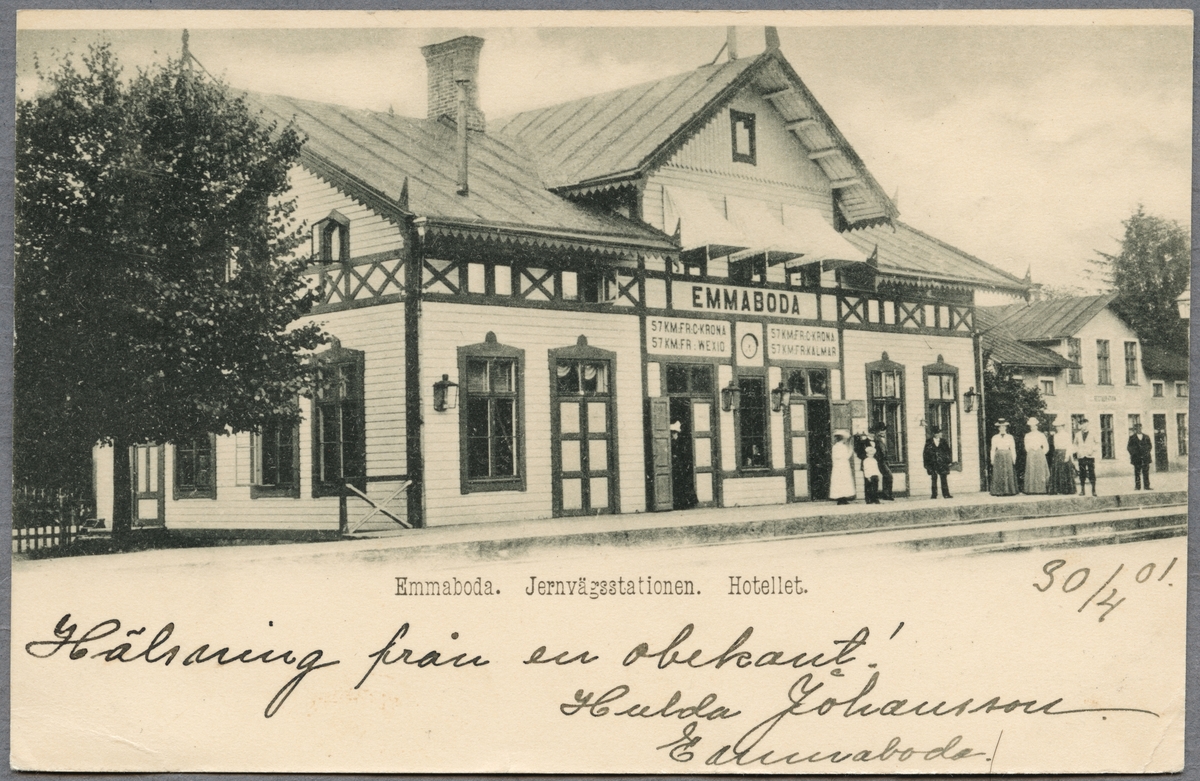 EMMABODA
57 KM. FR. C-KRONA
57 KM. FR. WEXIÖ
57 KM. FR. C-KRONA
57 KM. FR. KALMAR
Emmaboda. Jernvägsstationen. Hotellet.
30/4 01.
Hälsning från en obekant!
Hulda Johansson
Emmaboda!